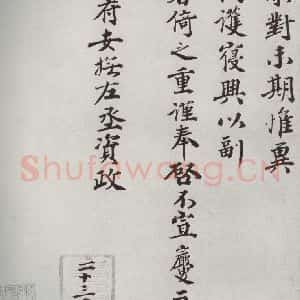 對未期惟冀
護寢興以副
倚之重謹奉啓不宣夔
府安撫左丞資政
二十三
Shufawang.CN